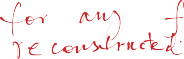 for any f
reconstructed: